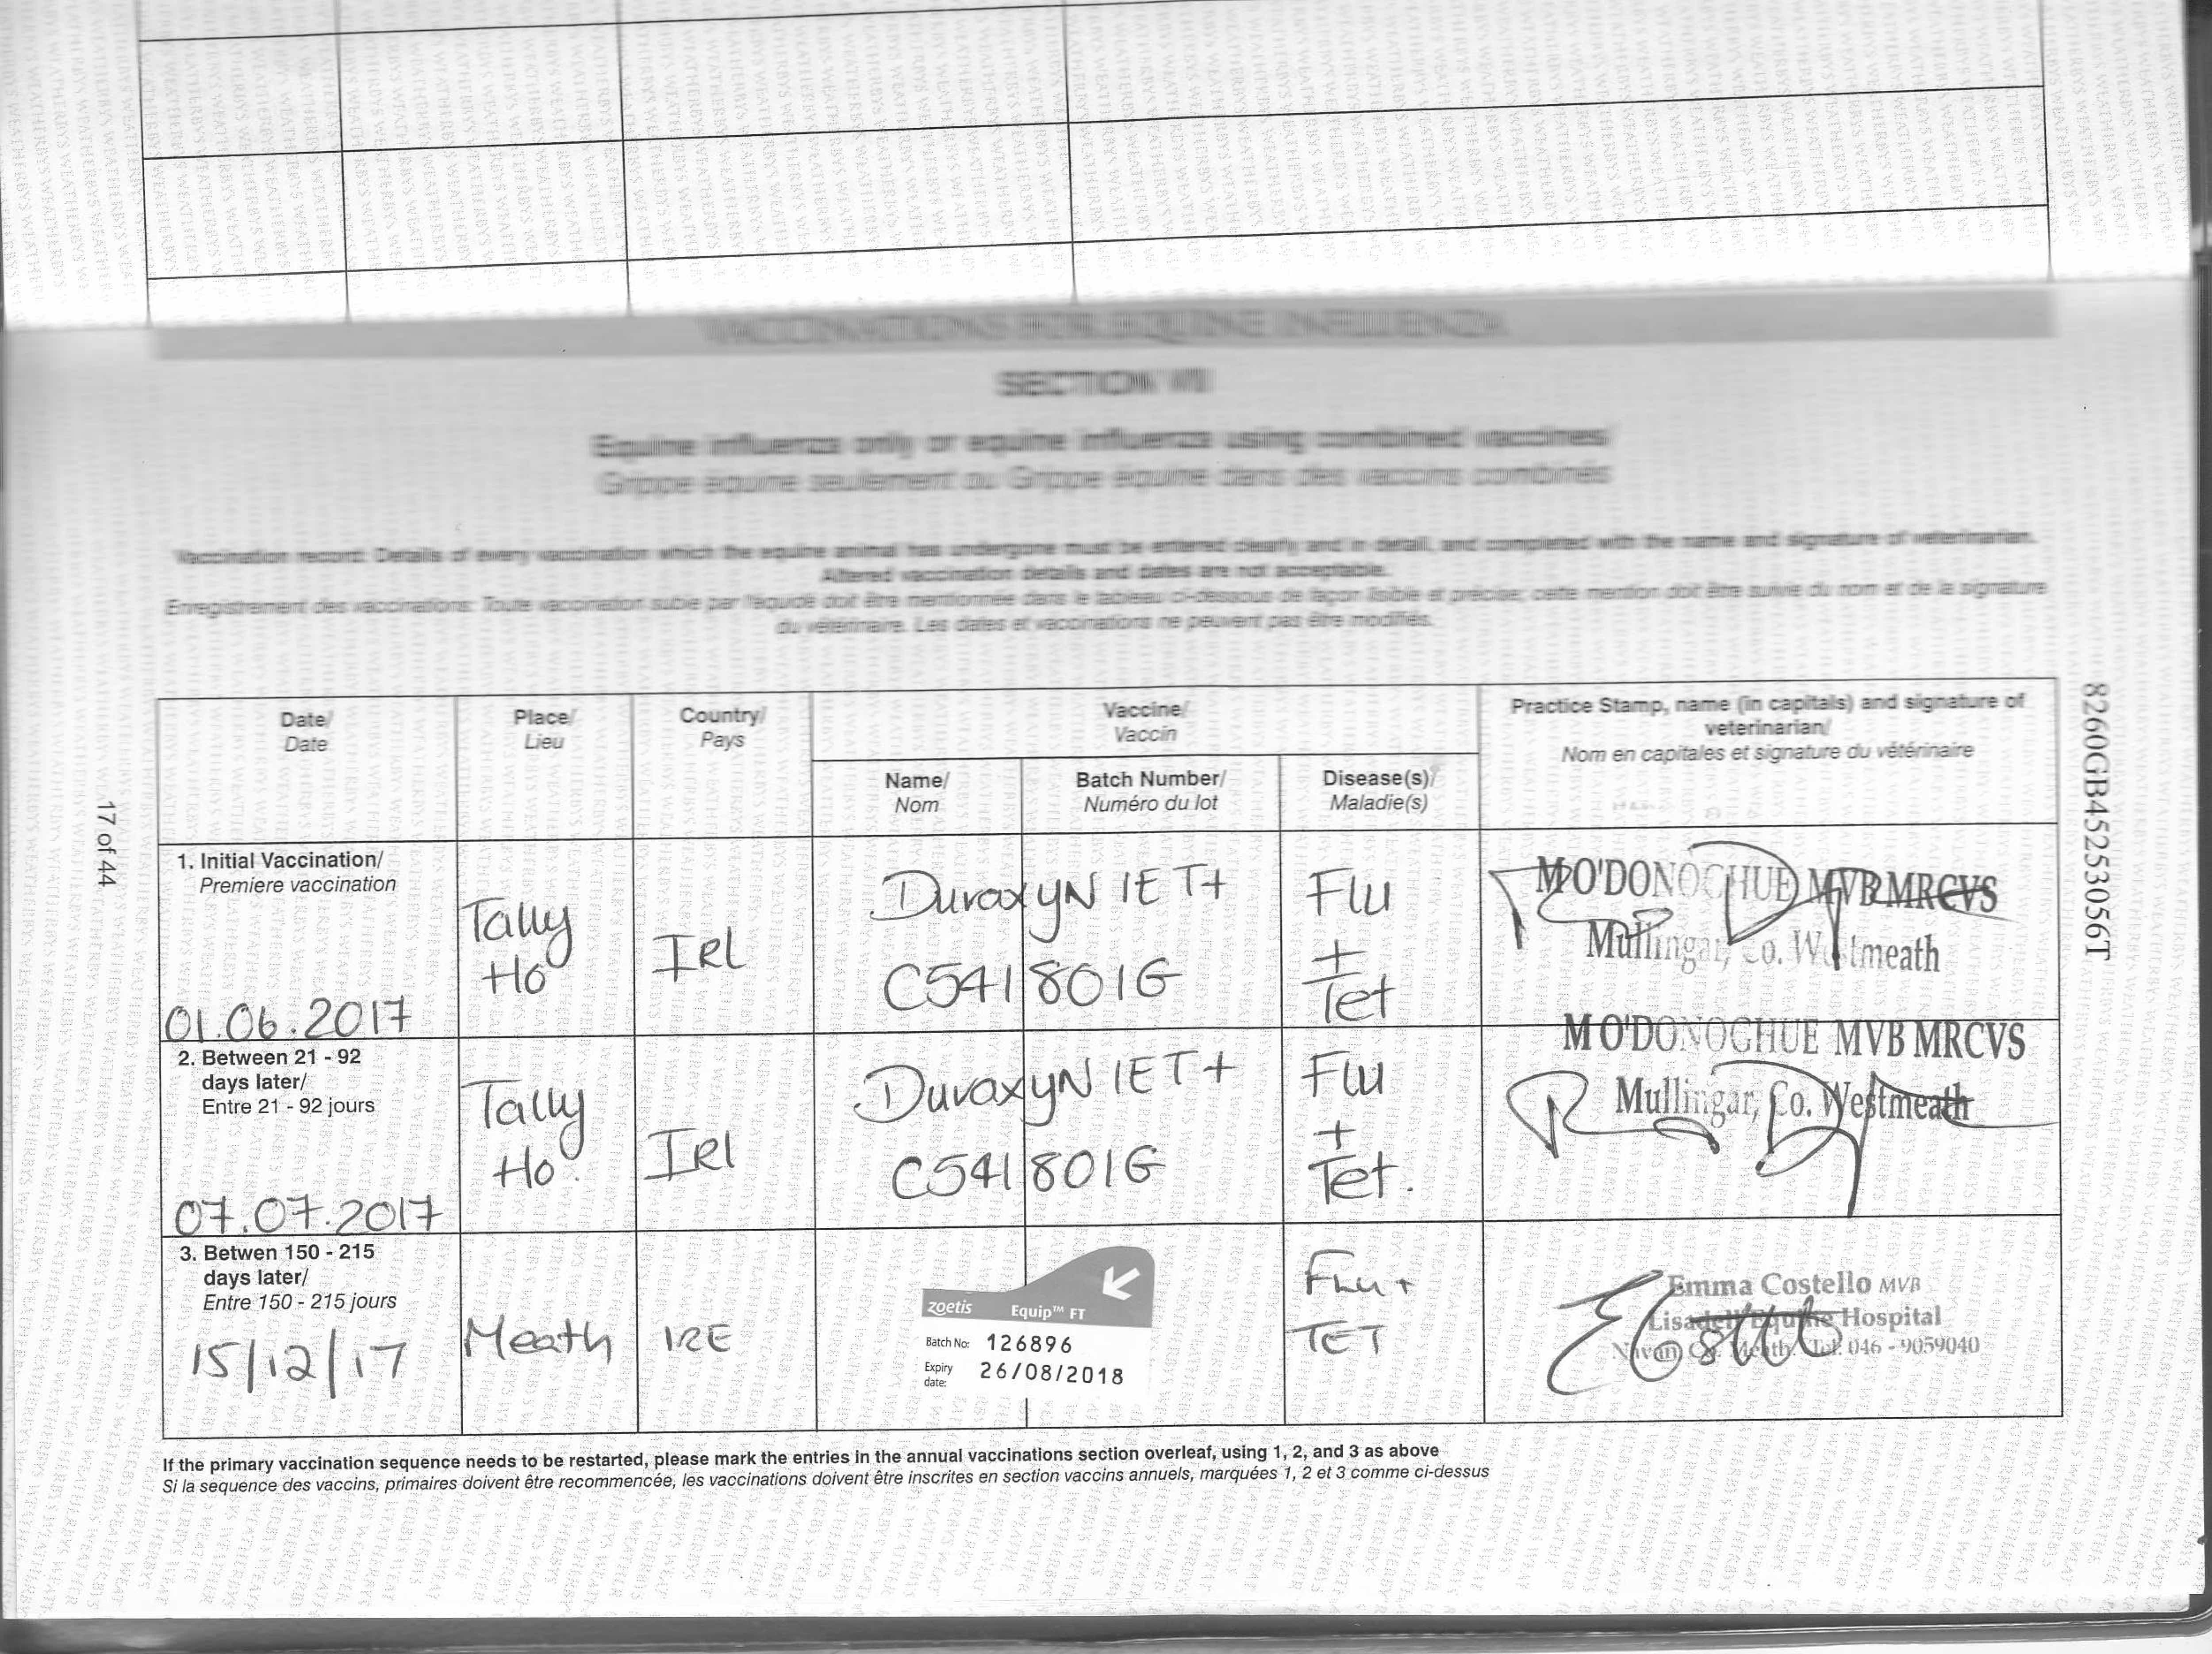 VACCINATIONS FOR EQUINE INFLUENZA
SECTION VII
Equine influenza only or equine influenza using combined vaccines/
Grippe équine seulement ou Grippe équine dans des vaccins combinés
Vaccination record: Details of every vaccination which the equine animal has undergone must be entered clearly and in detail, and completed with the name and signature of veterinarian.
Altered vaccination details and dates are not acceptable.
Enregistrement des vaccinations: Toute vaccination subie par l'équidé doit être mentionnée dans le tableau ci-dessous de façon lisible et précise; cette mention doit être suivie du nom et de la signature
du vétérinaire. Les dates et vaccinations ne peuvent pas être modifiés.
Date/
Date
Place/
Lieu
Country/
Pays
Vaccine/
Vaccin
Name/
Nom
Batch Number/
Numéro du lot
Disease(s)/
Maladie(s)
Practice Stamp, name (in capitals) and signature of
veterinarian/
Nom en capitales et signature du vétérinaire
1. Initial Vaccination/
Premiere vaccination
01.06.2017
Tally
Ho
IRL
DuvaxyN IET+
C541801G
Flu
+
Tet
M O'DONOGHUE MVB MRCVS
Mullingar, Co. Westmeath
2. Between 21 - 92
days later/
Entre 21 - 92 jours
07.07.2017
Tally
Ho.
IRl
DuvaxyN IET+
C541801G
Flu
+
Tet.
M O'DONOGHUE MVB MRCVS
Mullingar, Co. Westmeath
3. Betwen 150 - 215
days later/
Entre 150 - 215 jours
15/12/17
Meath
IRE
zoetis Equip™ FT
Batch No: 126896
Expiry
date: 26/08/2018
Flu +
TET
Emma Costello MVB
Lisadell Equine Hospital
Navan Co. Meath. Tel: 046 - 9059040
If the primary vaccination sequence needs to be restarted, please mark the entries in the annual vaccinations section overleaf, using 1, 2, and 3 as above
Si la sequence des vaccins, primaires doivent être recommencée, les vaccinations doivent être inscrites en section vaccins annuels, marquées 1, 2 et 3 comme ci-dessus
17 of 44
8260GB45253056T